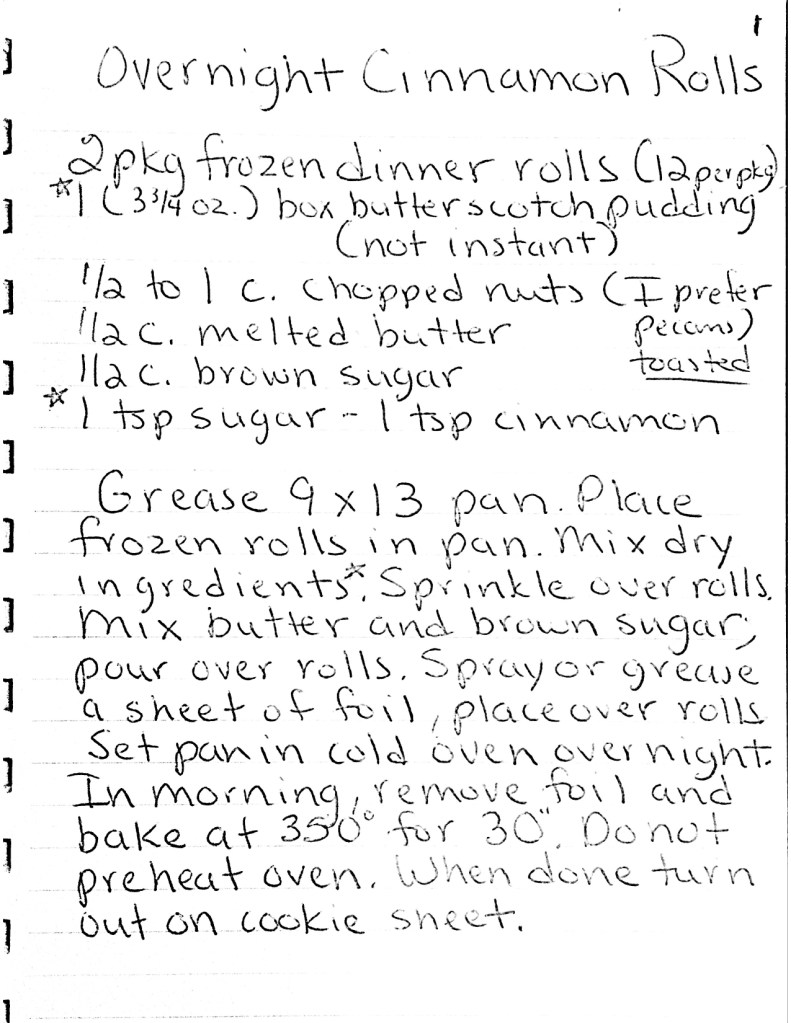 1
Overnight Cinnamon Rolls
2 pkg frozen dinner rolls (12 per pkg)
☆1 (3 3/4 oz.) box butterscotch pudding
(not instant)
1/2 to 1 c. chopped nuts (I prefer
pecans)
1/2 c. melted butter
toasted
1/2 c. brown sugar
☆1 tsp sugar - 1 tsp cinnamon
Grease 9 x 13 pan. Place
frozen rolls in pan. Mix dry
ingredients☆. Sprinkle over rolls.
Mix butter and brown sugar;
pour over rolls. Spray or grease
a sheet of foil, place over rolls
Set pan in cold oven overnight.
In morning, remove foil and
bake at 350° for 30". Do not
preheat oven. When done turn
out on cookie sheet.